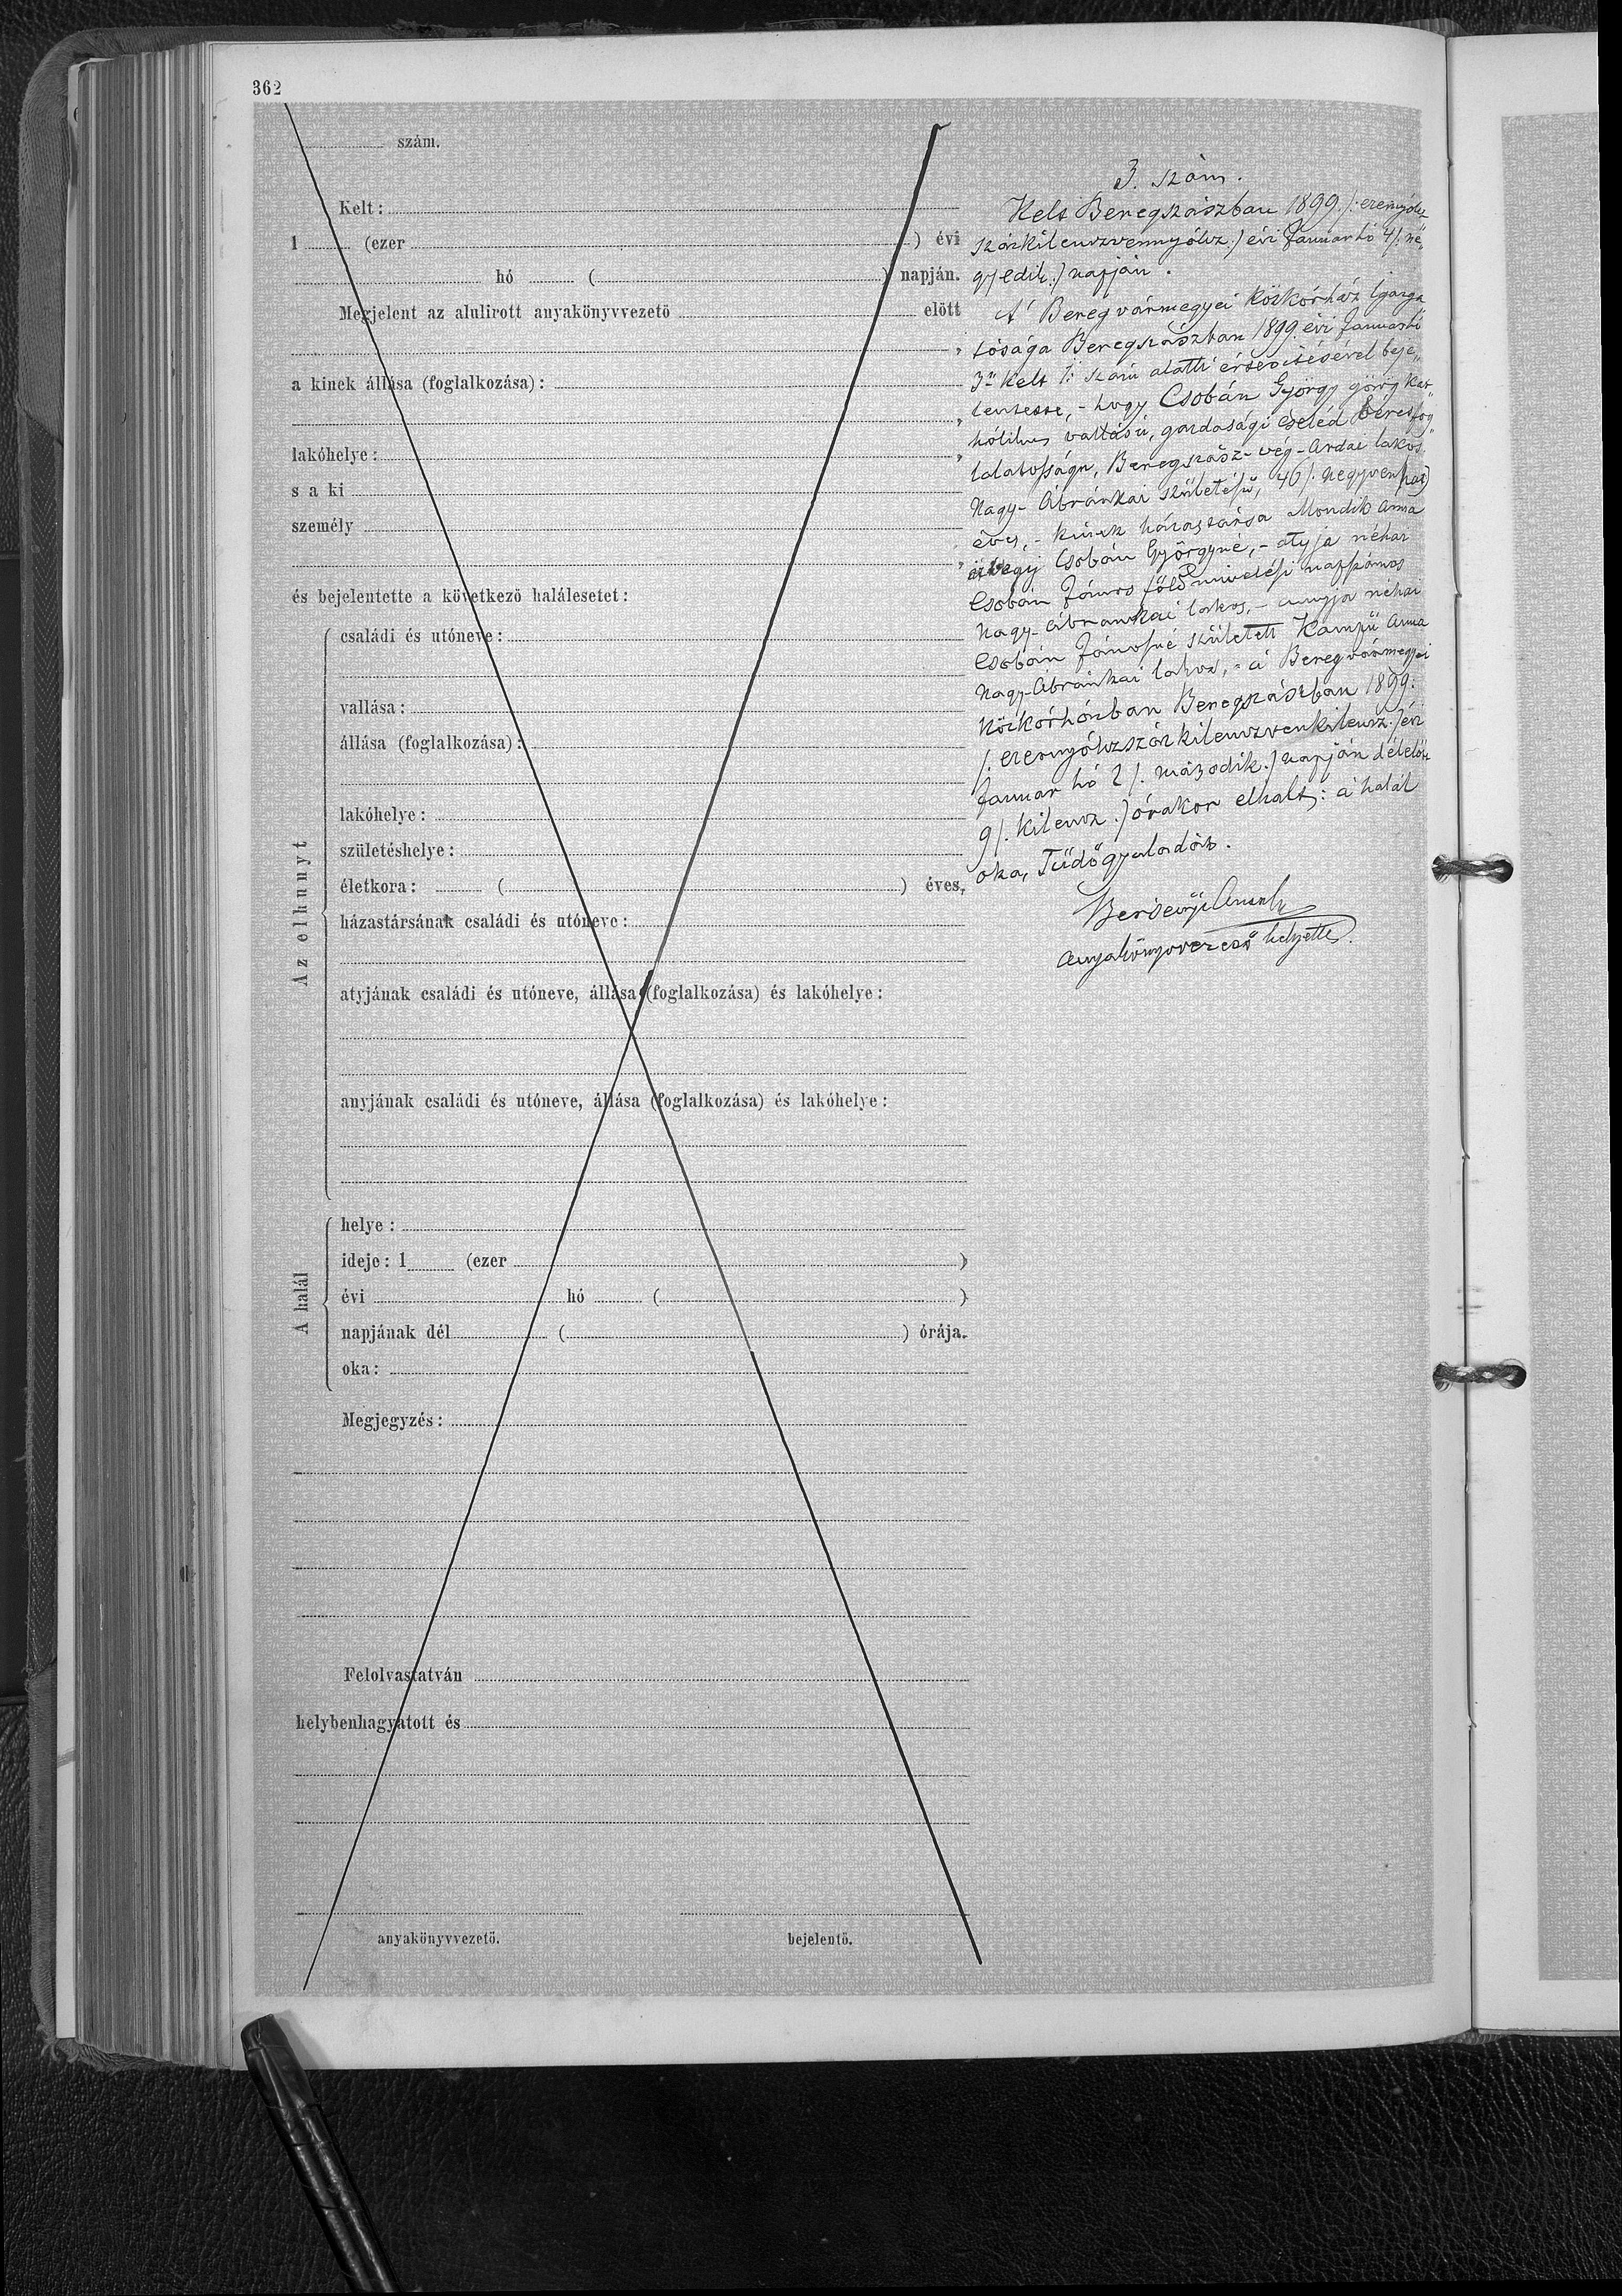 362
szám.
Kelt:
1 (ezer ) évi
hó ( ) napján.
Megjelent az alulirott anyakönyvvezető előtt
,
a kinek állása (foglalkozása):
,
lakóhelye: ,
s a ki
személy
,
és bejelentette a következő halálesetet:
Az elhunyt
családi és utóneve:
vallása:
állása (foglalkozása):
lakóhelye:
születéshelye:
életkora: ( ) éves,
házastársának családi és utóneve:
atyjának családi és utóneve, állása (foglalkozása) és lakóhelye:
anyjának családi és utóneve, állása (foglalkozása) és lakóhelye:
A halál
helye:
ideje: 1 (ezer )
évi hó ( )
napjának dél ( ) órája.
oka:
Megjegyzés:
Felolvastatván
helybenhagyatott és
anyakönyvvezető.
bejelentő.
3. szám.
Kelt Beregszászban 1899 /: ezernyolcz
százkilenczvennyólcz:/ évi Január hó 4 /: né„
gyedik:/ napján.
A' Bereg vármegyei közkórház Igazga
tósága Beregszászban 1899 évi Januárhó
3án kelt 1: számú alatti értesitésével beje„
lentette, - hogy Csobán György görög kat„
hólikus vallású, gazdasági cseléd béres fog„
lalatosságu, Beregszász-vég-Ardai lakos,
Nagy-Ábránkai születésű, 46 /: negyvenhat)
éves, - kinek házastársa Mondik Anna
özvegy Csobán Györgyné, - atyja néhai
Csobán János földmivelési napszámos
Nagy-Ábránkai lakos, - anyja néhai
Csobán Jánosné született Kampü Anna
Nagy-Ábránkai lakos, - a' Bereg vármegyei
közkórházban Beregszászban 1899.
/: ezernyólczszázkilenczvenkilencz:/ évi
Január hó 2 /: második:/ napján délelőtt
9 /: kilencz:/ órakor elhalt: a' halál
oka, Tüdőgyuladás.
anyakönyvvezető helyettes.